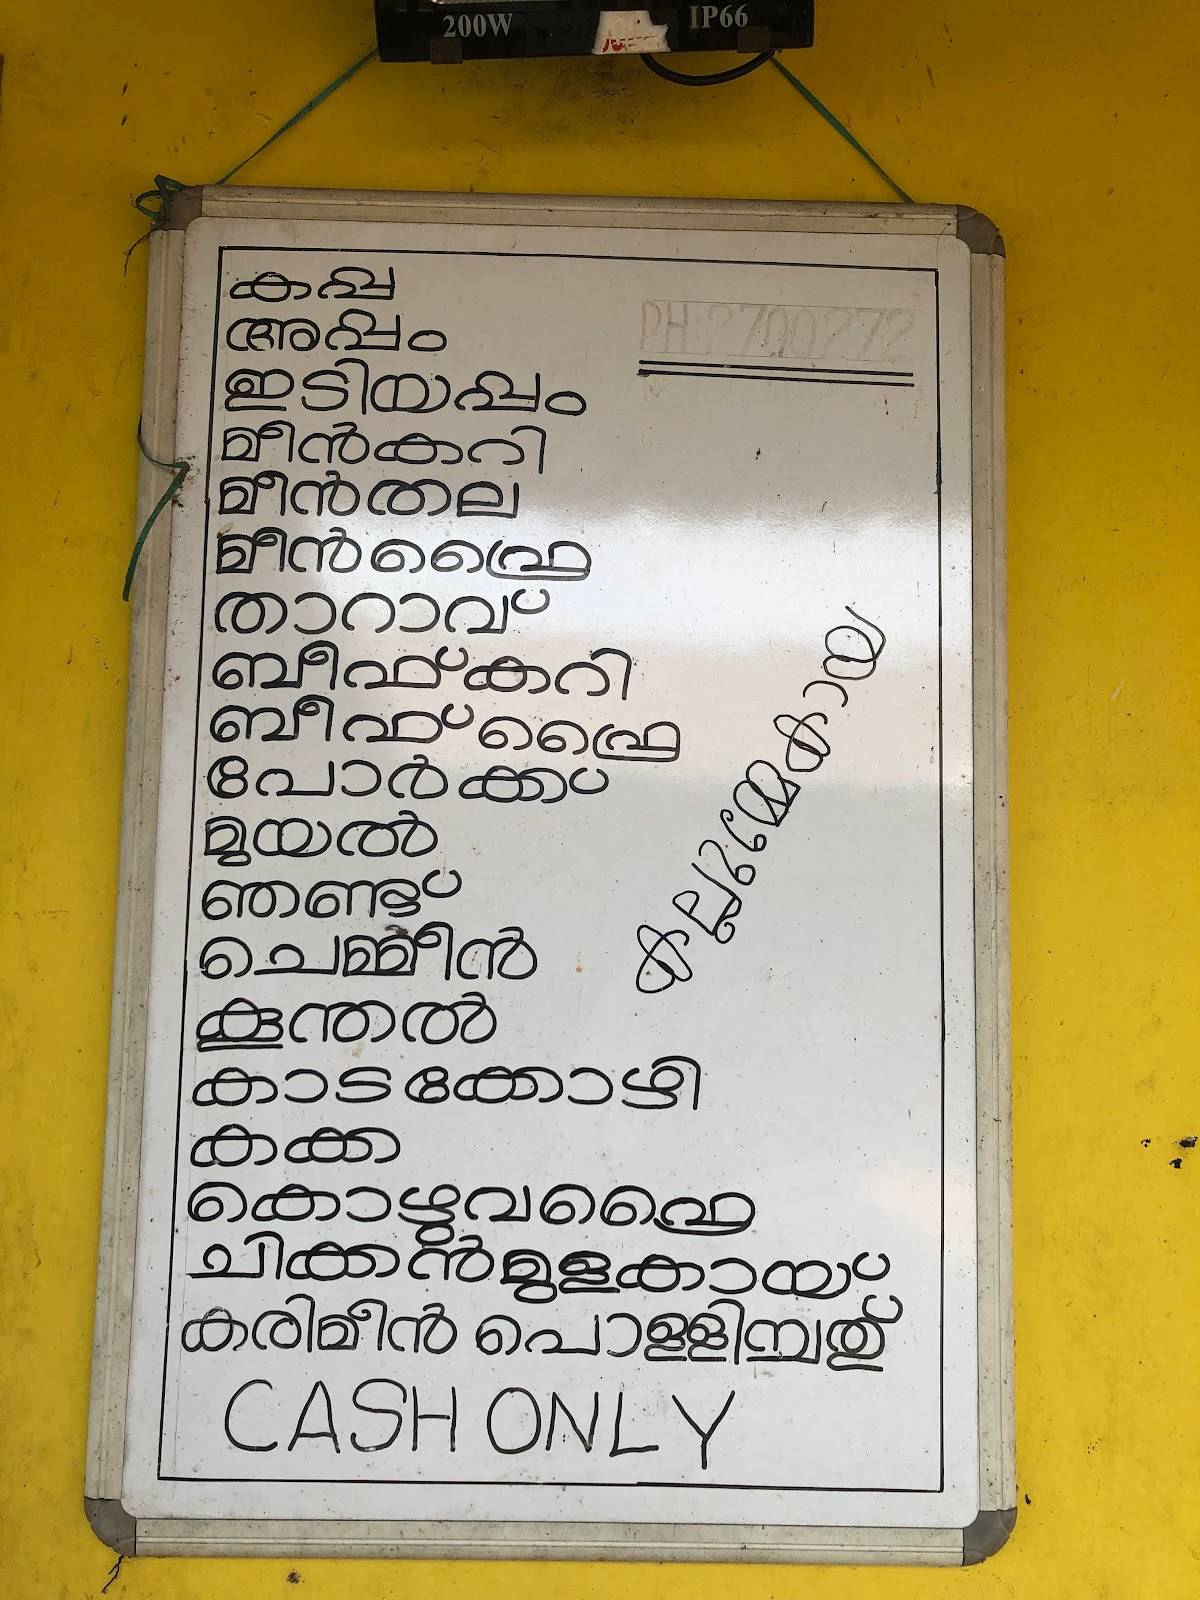 200W IP66
കപ്പ
PH:2700272
അപ്പം
ഇടിയപ്പം
മീൻകറി
മീൻതല
മീൻഫ്രൈ
താറാവ്
ബീഫ്കറി
ബീഫ് ഫ്രൈ
പോർക്ക്
മുയൽ
ഞണ്ട്
ചെമ്മീൻ
കൂന്തൽ
കാടക്കോഴി
കക്ക
കൊഴുവഫ്രൈ
ചിക്കൻമുളകായ്
കരിമീൻ പൊള്ളിച്ചത്
കല്ലുമ്മേകായ
CASH ONLY